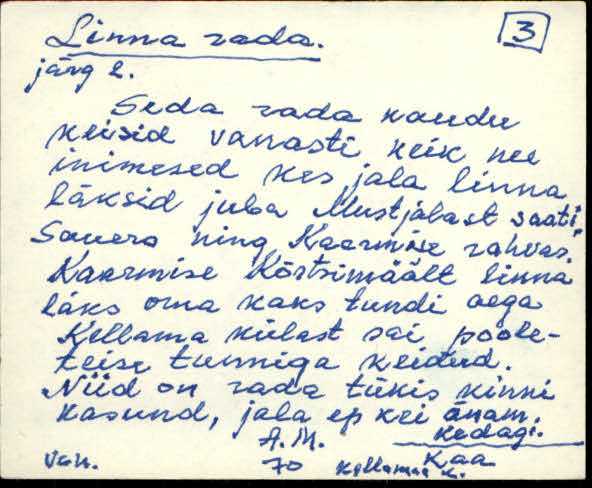 Linna rada. 3
järg 2.
Seda rada kaudu
keisid vanasti keik nee
inimesed kes jala linna
läksid juba Mustjalast saati,
Sauero ning Kaarmise rahvas.
Kaarmise Kõrtsimäält linna
läks oma kaks tundi aega
Kellama külast sai poole-
teise tunniga keidud.
Niid on rada tükis kinni
kasund, jala ep kei änam
kedagi.
A.M. Kaa
Van. 70 Kellamaa k.